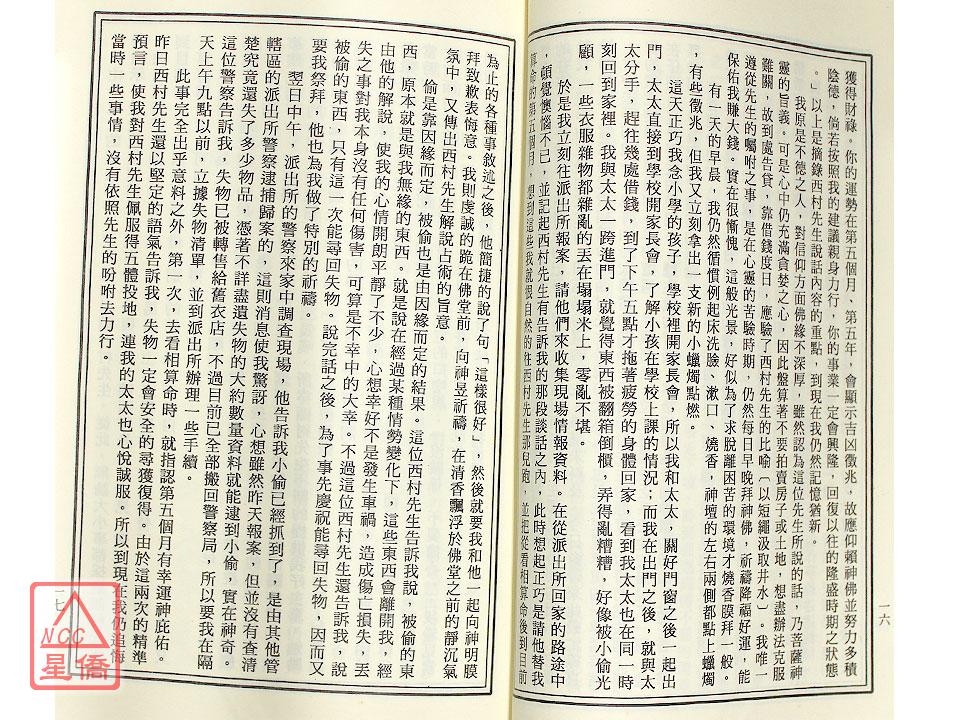 獲得財祿。你的運勢在第五個月、第五年,會顯示吉凶徵兆,故應仰賴神佛並努力多積
陰德,倘若按照我的建議親身力行,你的事業一定會興隆,回復以往的隆盛時期之狀態
。」以上是摘錄西村先生說話內容的重點,到現在我仍然記憶猶新。
我原是不德之人,對信仰方面佛緣不深厚,雖然認為這位先生所說的話,乃菩薩神
靈的旨義。可是心中仍充滿貪婪之心,因此盤算著不要拍賣房子或土地,想盡辦法克服
難關,故到處告貸,靠借錢度日,應驗了西村先生的比喻〔以短繩汲取井水〕。我唯一
遵從先生的囑咐之事,是在心靈的苦驗時期,仍然每日早晚拜神佛,祈禱降福好運,能
保佑我賺大錢。實在很慚愧,這般光景,好似為了求脫離困苦的環境才燒香膜拜一般。
有一天的早晨,我仍然循慣例起床洗臉、漱口、燒香,神壇的左右兩側都點上蠟燭
,有些徵兆,但我又立刻拿出一支新的小蠟燭點燃。
這天正巧我念小學的孩子,學校裡開家長會,所以我和太太,關好門窗之後一起出
門,太太直接到學校開家長會,了解小孩在學校上課的情況;而我在出門之後,就與太
太分手,趕往幾處借錢,到了下午五點才拖著疲勞的身體回家,看到我太太也在同一時
刻回到家裡。我與太太一跨進門,就覺得東西被翻箱倒櫃,弄得亂糟糟,好像被小偷光
顧,一些衣服雜物都雜亂的丟在塌塌米上,零亂不堪。
於是我立刻往派出所報案,請他們來收集現場情報資料。在從派出所回家的路途中
,頓覺懊惱不已,並記起西村先生有告訴我的那段談話之內,此時想起正巧是請他替我
算命的第五個月,想到這些我就很自然的往西村先生那兒跑,並把從看相算命後到目前
一六
為止的各種事敘述之後,他簡捷的說了句「這樣很好」,然後就要我和他一起向神明膜
拜致歉表悔意。我則虔誠的跪在佛堂前,向神昱祈禱,在清香飄浮於佛堂之前的靜沉氣
氛中,又傳出西村先生解說占術的旨意。
偷是靠因緣而定,被偷也是由因緣而定的結果。這位西村先生告訴我說,被偷的東
西,原本就是與我無緣的東西。就是說在經過某種情勢變化下,這些東西會離開我,經
由他的解說,使我的心情開朗平靜了不少,心想幸好不是發生車禍,造成傷亡損失,丟
失之事對我本身沒有任何傷害,可算是不幸中的大幸。不過這位西村先生還告訴我,說
被偷的東西,只有這一次能尋回失物。說完話之後,為了事先慶祝能尋回失物,因而又
要我祭拜,他也為我做了特別的祈禱。
翌日中午,派出所的警察來家中調查現場,他告訴我小偷已經抓到了,是由其他管
轄區的派出所警察逮捕歸案的,這則消息使我驚訝,心想雖然昨天報案,但並沒有查清
楚究竟還失了多少物品,憑著不詳盡遺失物的大約數量資料就能逮到小偷,實在神奇。
這位警察告訴我,失物已被轉售給舊衣店,不過目前已全部搬回警察局,所以要我在隔
天上午九點以前,立據失物清單,並到派出所辦理一些手續。
此事完全出乎意料之外,第一次,去看相算命時,就指認第五個月有幸運神庇佑。
昨日西村先生還以堅定的語氣告訴我,失物一定會安全的尋獲復得。由於這兩次的精準
預言,使我對西村先生佩服得五體投地,連我的太太也心悅誠服。所以到現在我仍追悔
當時一些事情,沒有依照先生的吩咐去力行。
一七
NCC
星僑